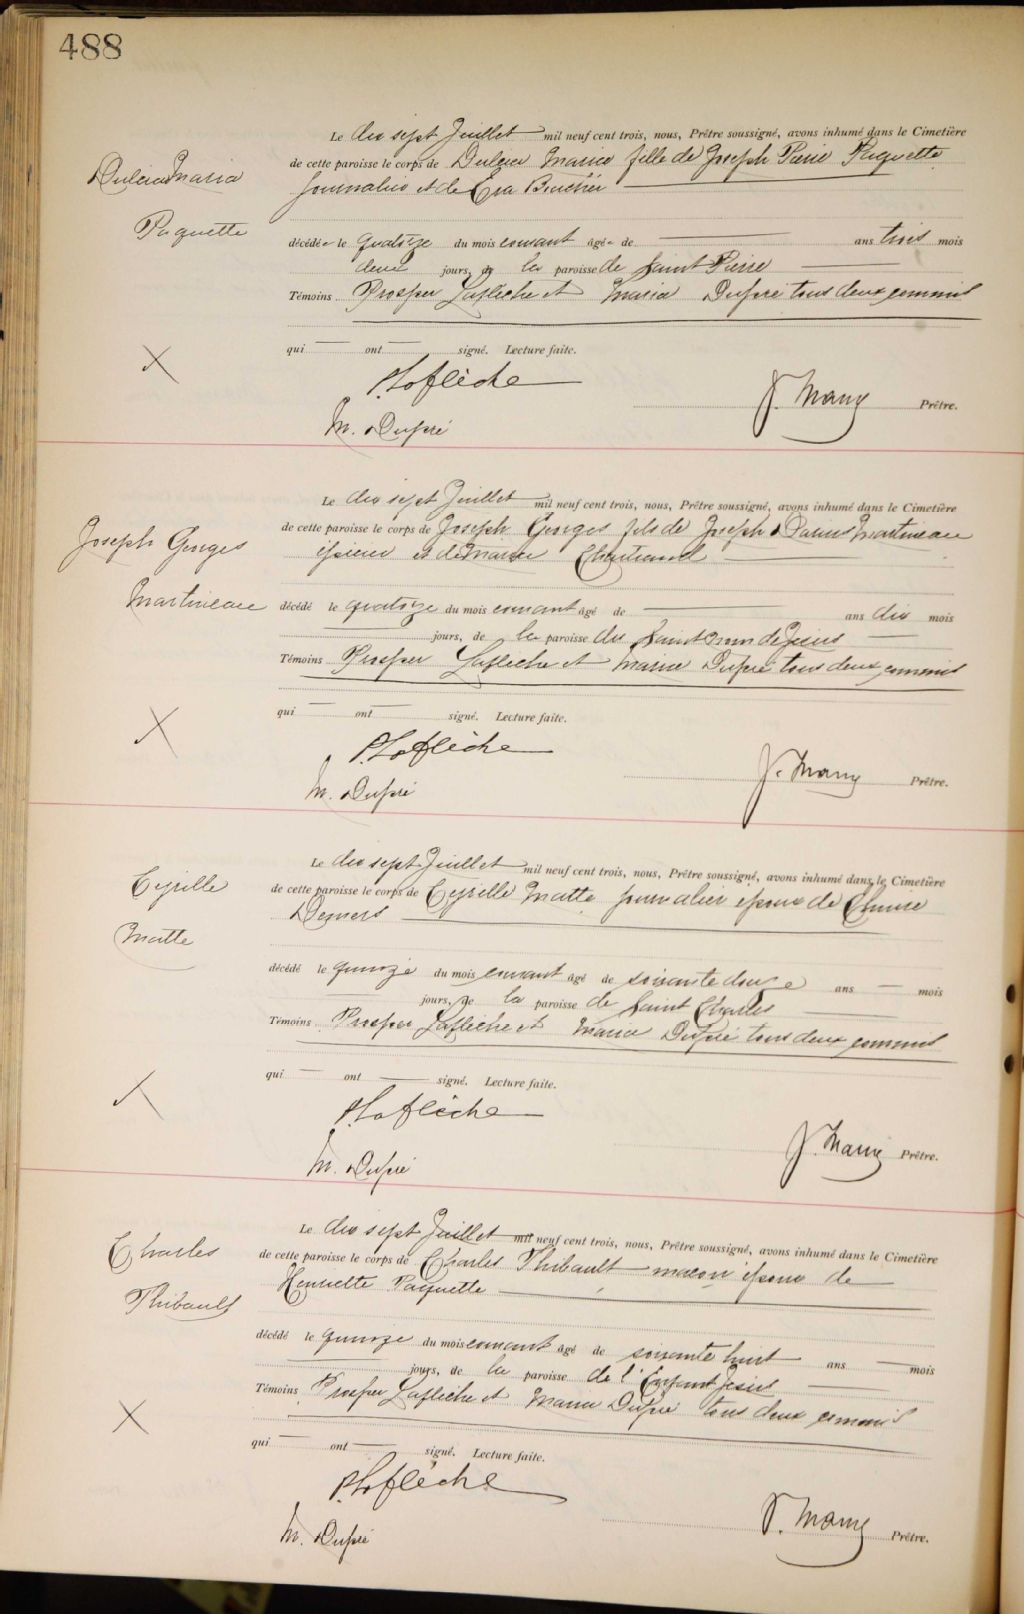 488
Le dix sept Juillet mil neuf cent trois, nous, Prêtre soussigné, avons inhumé dans le Cimetière
de cette paroisse le corps de Dulcia Maria fille de Joseph Pierre Paquette
Journalier et de Eva Boucher
Dulcia Maria
Paquette
décédée le quatorze du mois courant âgée de ans trois mois
deux jours, de la paroisse de Saint Pierre
Témoins Prosper Laflèche et Maria Dupré tous deux commis
qui ont signé. Lecture faite.
P. Laflèche
J. Prêtre.
M. Dupré
Le dix sept Juillet mil neuf cent trois, nous, Prêtre soussigné, avons inhumé dans le Cimetière
de cette paroisse le corps de Joseph Georges fils de Joseph Darius Martineau
épicier et de Maria Chartrand
Joseph Georges
Martineau
décédé le quatorze du mois courant âgé de ans dix mois
jours, de la paroisse du Saint nom de Jésus
Témoins Prosper Laflèche et Maria Dupré tous deux commis
qui ont signé. Lecture faite.
P. Laflèche
J. Prêtre.
M. Dupré
Le dix sept Juillet mil neuf cent trois, nous, Prêtre soussigné, avons inhumé dans le Cimetière
de cette paroisse le corps de Cyrille Matte journalier époux de
Demers
Cyrille
Matte
décédé le quinze du mois courant âgé de soixante douze ans mois
jours, de la paroisse de Saint Charles
Témoins Prosper Laflèche et Maria Dupré tous deux commis
qui ont signé. Lecture faite.
P. Laflèche
J. Prêtre.
M. Dupré
Le dix sept Juillet mil neuf cent trois, nous, Prêtre soussigné, avons inhumé dans le Cimetière
de cette paroisse le corps de Charles Thibault maçon époux de
Henriette Paquette
Charles
Thibault
décédé le quinze du mois courant âgé de soixante huit ans mois
jours, de la paroisse de l'Enfant Jésus
Témoins Prosper Laflèche et Maria Dupré tous deux commis
qui ont signé. Lecture faite.
P. Laflèche
J. Prêtre.
M. Dupré